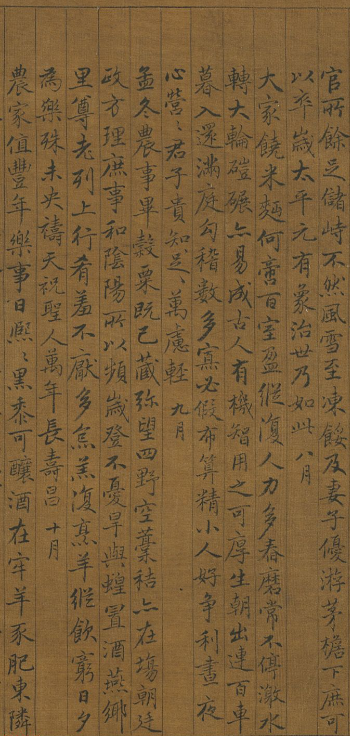 官所餘足儲峙不然風雪至凍餒及妻子優游茅檐下庶可
以卒歲太平元有象治世乃如此 八月
大家饒米麵何啻百室盈縱復人力多舂磨常不停激水
轉大輪磑碾亦易成古人有機智用之可厚生朝出連百車
暮入還滿庭勾稽數多寡必假布算精小人好爭利晝夜
心營〻君子貴知足〻萬慮輕 九月
孟冬農事畢穀粟既已藏弥望四野空藁秸亦在場朝廷
政方理庶事和陰陽所以頻歲登不憂旱與蝗置酒燕鄉
里尊老列上行肴羞不厭多炰羔復烹羊縱飲窮日夕
為樂殊未央禱天祝聖人萬年長壽昌 十月
農家值豐年樂事日熙〻黑黍可釀酒在牢羊豕肥東隣